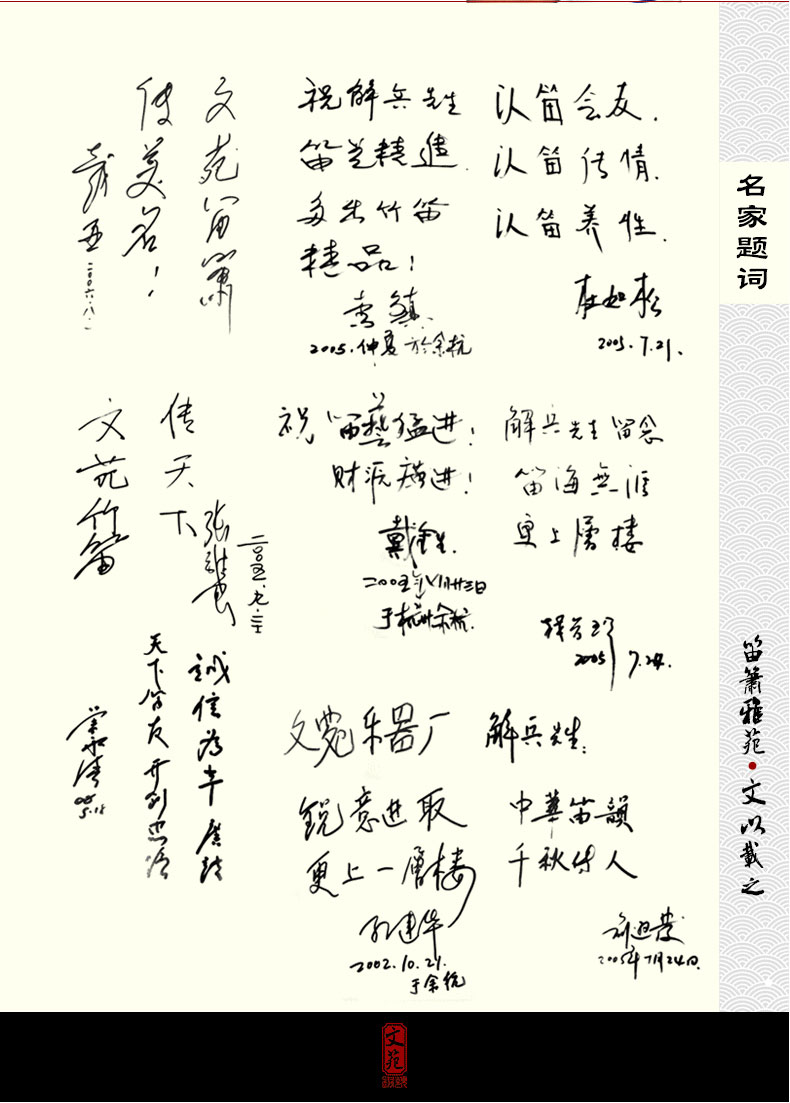 名家题词
笛箫雅苑·文以载之
认笛会友.
认笛传情.
认笛养性.
杜如松
2005.7.21.
祝解兵先生
笛艺精进.
多出竹笛
精品!
袁镇
2005.仲夏于余杭
文苑笛箫
传美名!
戴亚
二〇〇六.八.一
解兵先生留念
笛海無涯
更上層楼
2005 7.24.
祝笛藝猛进!
财源广进!
戴金生
二〇〇五年VII月廿三日
于杭州余杭.
文苑竹笛
传天下
张維良
二〇〇五.七.二十
解兵先生:
中華笛韻
千秋传人
2005年7月24日.
文苑乐器厂
锐意进取
更上一層楼
孔建华
2002.10.21.
于余杭
誠信為本
天下笛友
荣政
05
5.18
文苑